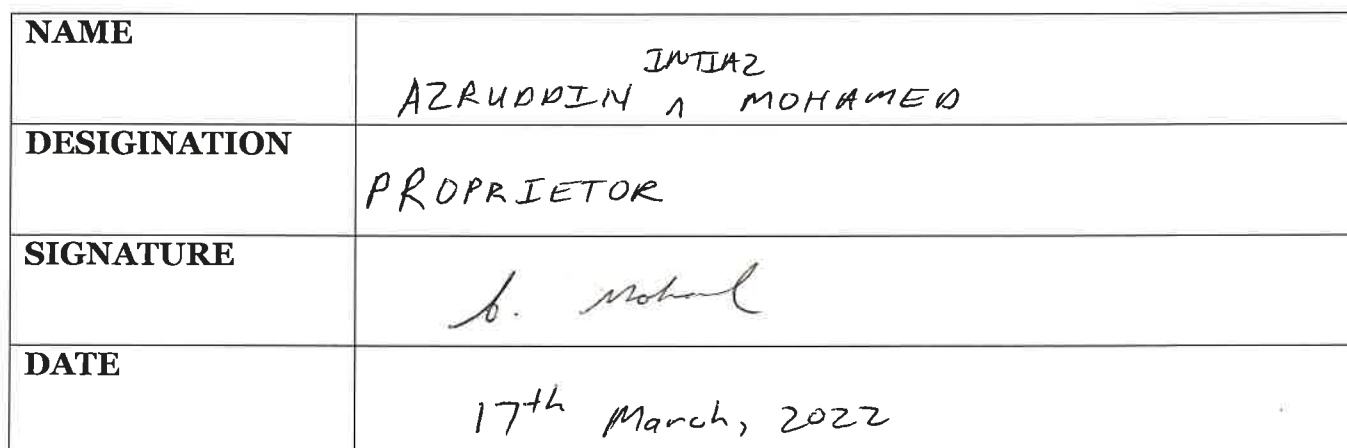 NAME
INTIAZ
AZRUDDIN ʌ MOHAMED
DESIGINATION
PROPRIETOR
SIGNATURE
A. Mohamed
DATE
17th March, 2022